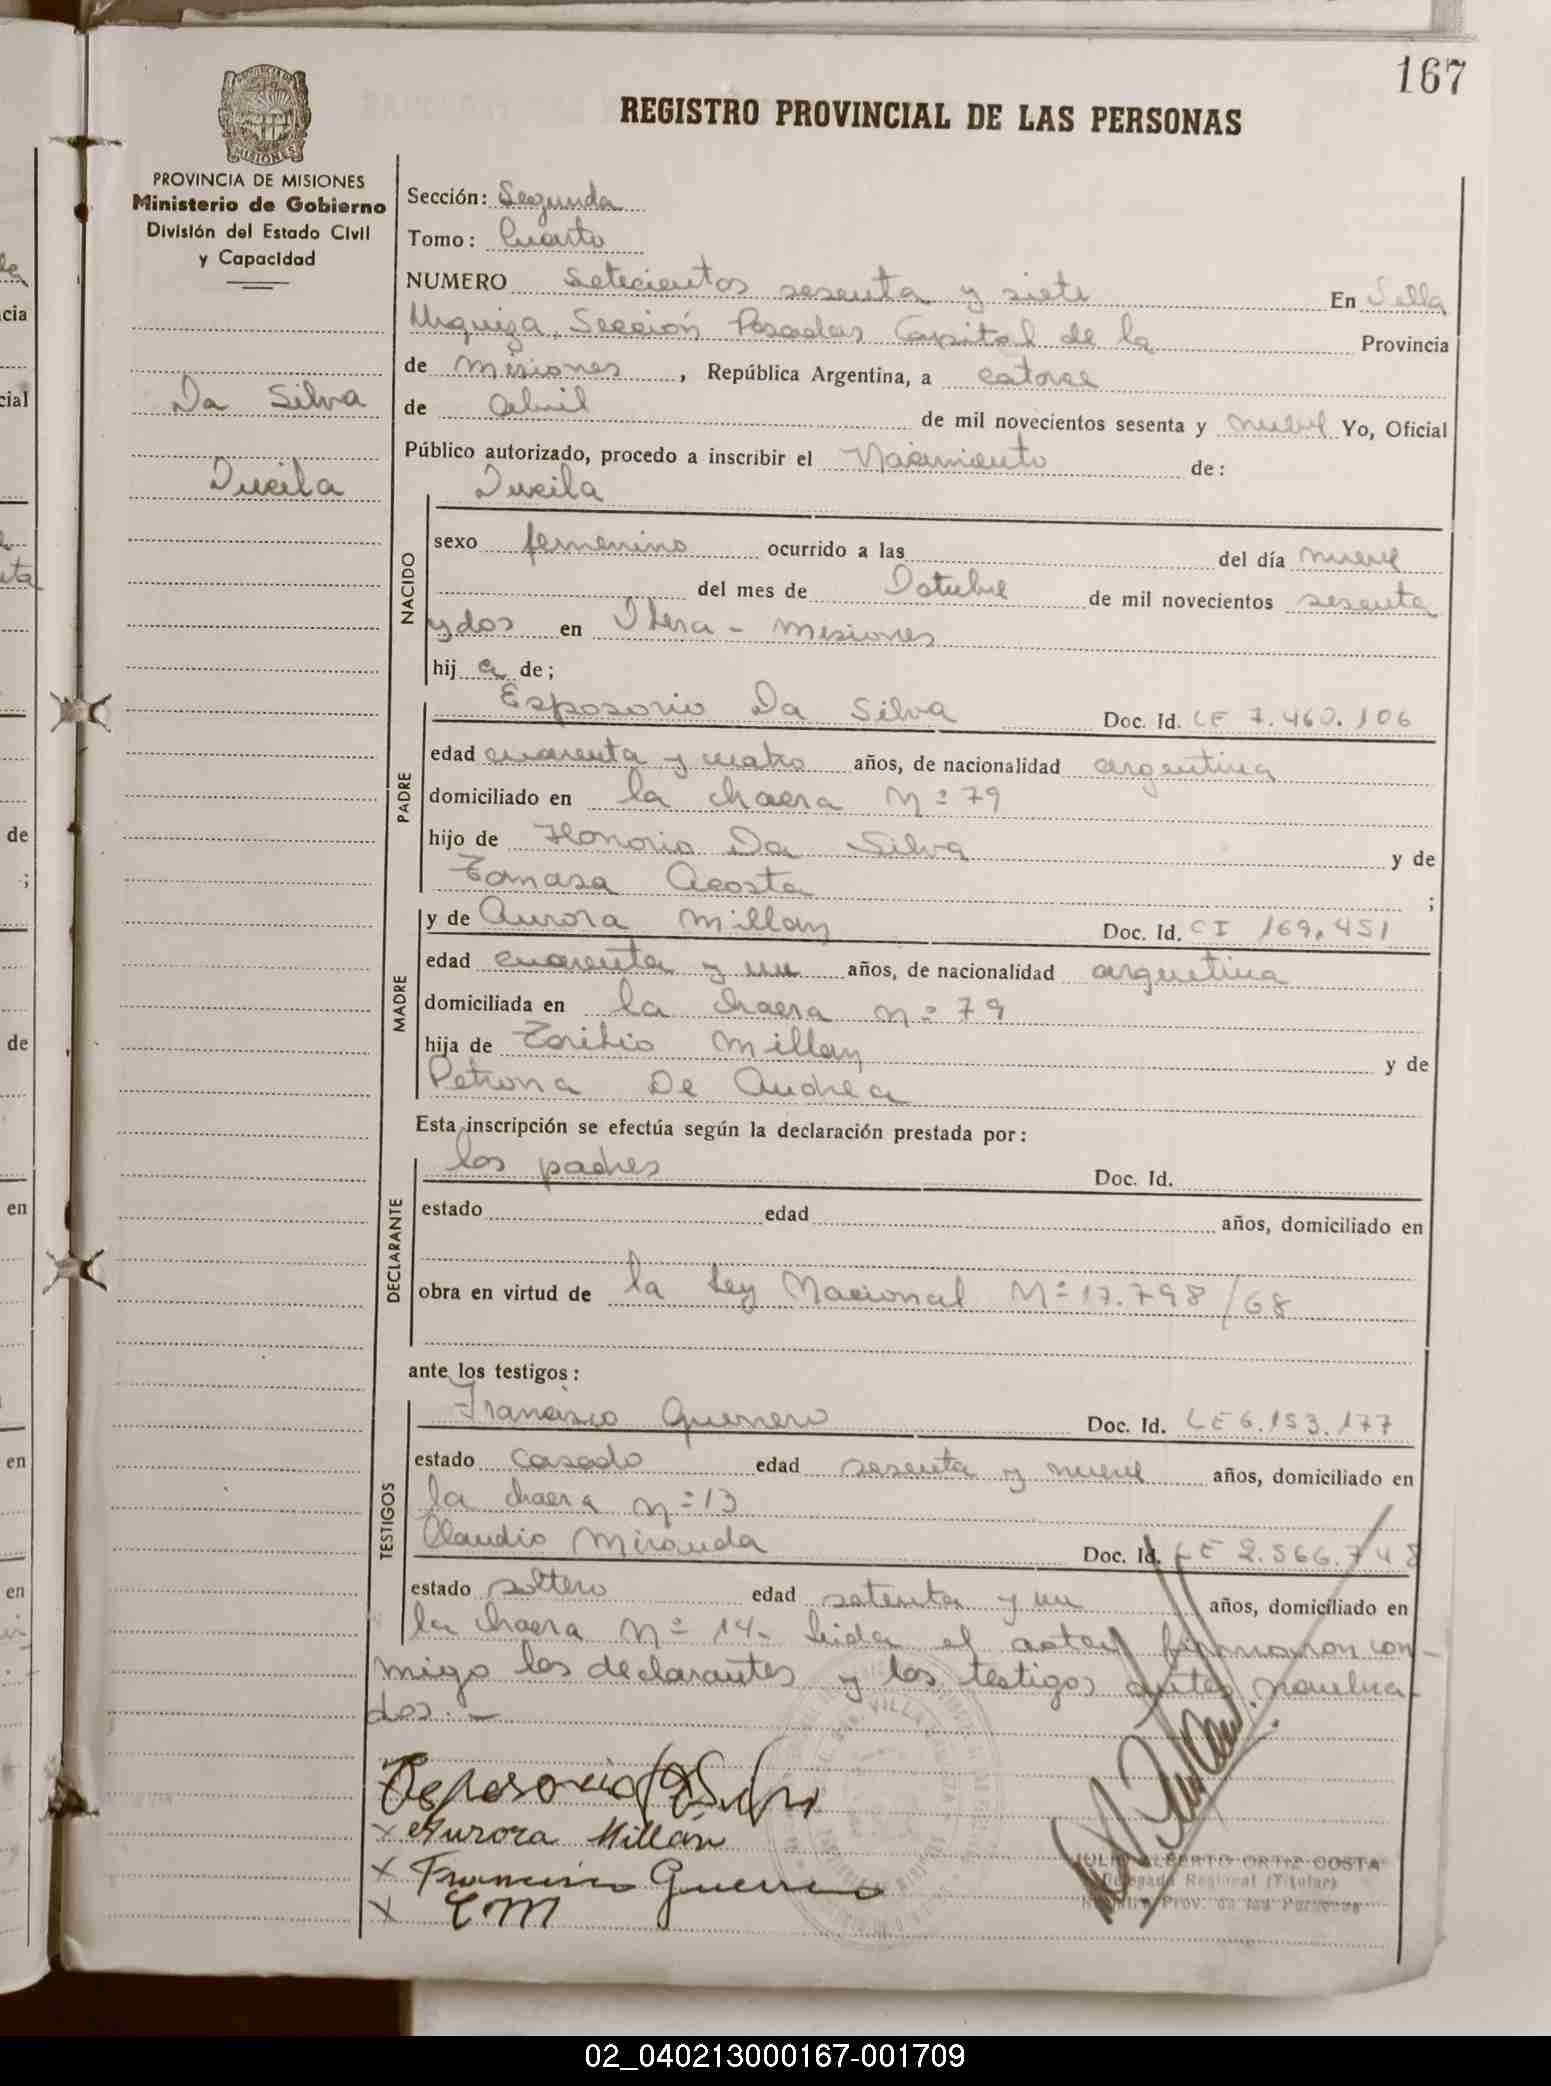 167
REGISTRO PROVINCIAL DE LAS PERSONAS
PROVINCIA DE MISIONES
Ministerio de Gobierno
División del Estado Civil
y Capacidad
Da Silva
Ducila
Sección: Segunda
Tomo: Cuarto
NUMERO setecientos sesenta y siete En Villa
Urquiza, Sección Posadas Capital de la Provincia
de Misiones, República Argentina, a catorce
de abril de mil novecientos sesenta y nueve Yo, Oficial
Público autorizado, procedo a inscribir el Nacimiento de:
NACIDO
Ducila
sexo femenino ocurrido a las del día nueve
del mes de Octubre de mil novecientos sesenta
y dos en Itera - Misiones
hij a de;
PADRE
Esposorio Da Silva Doc. Id. LE 7.460.106
edad cuarenta y cuatro años, de nacionalidad argentina
domiciliado en la chacra Nº 79
hijo de Honorio Da Silva y de
Tomasa Acosta ;
MADRE
y de Aurora Millan Doc. Id. CI 169.451
edad cuarenta y un años, de nacionalidad argentina
domiciliada en la chacra nº 79
hija de Toribio Millan y de
Petrona De Andrea
Esta inscripción se efectúa según la declaración prestada por:
DECLARANTE
los padres Doc. Id.
estado edad años, domiciliado en
obra en virtud de la Ley Nacional Nº 17.798/68
ante los testigos:
TESTIGOS
Francisco Guerrero Doc. Id. LE 6.153.177
estado casado edad sesenta y nueve años, domiciliado en
la chacra nº 13
Claudio Miranda Doc. Id. LE 2.566.748
estado soltero edad setenta y un años, domiciliado en
la chacra Nº 14- leida el acta firmaron con-
migo los declarantes y los testigos antes nombra-
dos.-
Aurora Millán
Francisco Guerrero
CM
JULIO ALBERTO ORTIZ COSTA
Delegado Regional (Titular)
Registro Prov. de las Personas
02_040213000167-001709